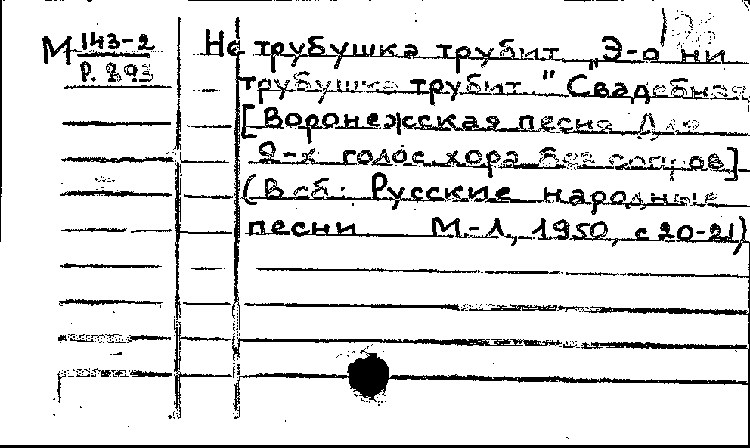 М 143-2 Не трубушка трубит „Э-о ни
Р. 893 трубушка трубит." Свадебная
[Воронежская песня для
2-х голос. хора без сопров]
(В сб: Русские народные
песни М.-Л, 1950, с 20-21)